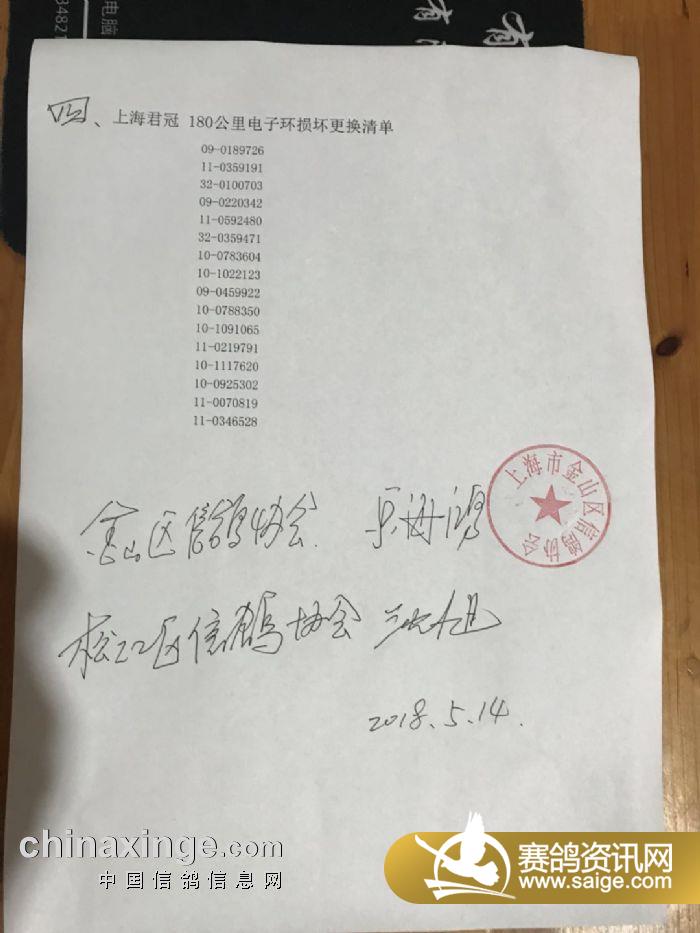 电脑
34821
有
有
四、上海君冠 180公里电子环损坏更换清单
09-0189726
11-0359191
32-0100703
09-0220342
11-0592480
32-0359471
10-0783604
10-1022123
09-0459922
10-0788350
10-1091065
11-0219791
10-1117620
10-0925302
11-0070819
11-0346528
上海市金山区信鸽协会
金山区信鸽协会.
松江区信鸽协会
2018.5.14.
chinaxinge.com
中国信鸽信息网
赛鸽资讯网
www.saige.com